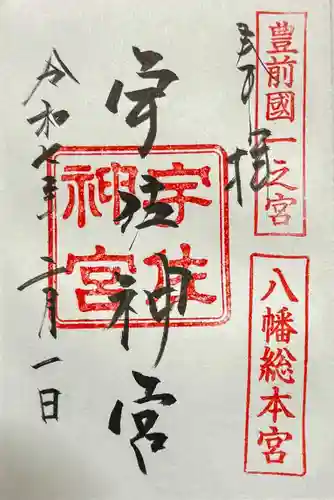 豊前國一之宮
八幡総本宮
奉拝
宇佐神宮
宇佐
神宮
令和七年 月一日